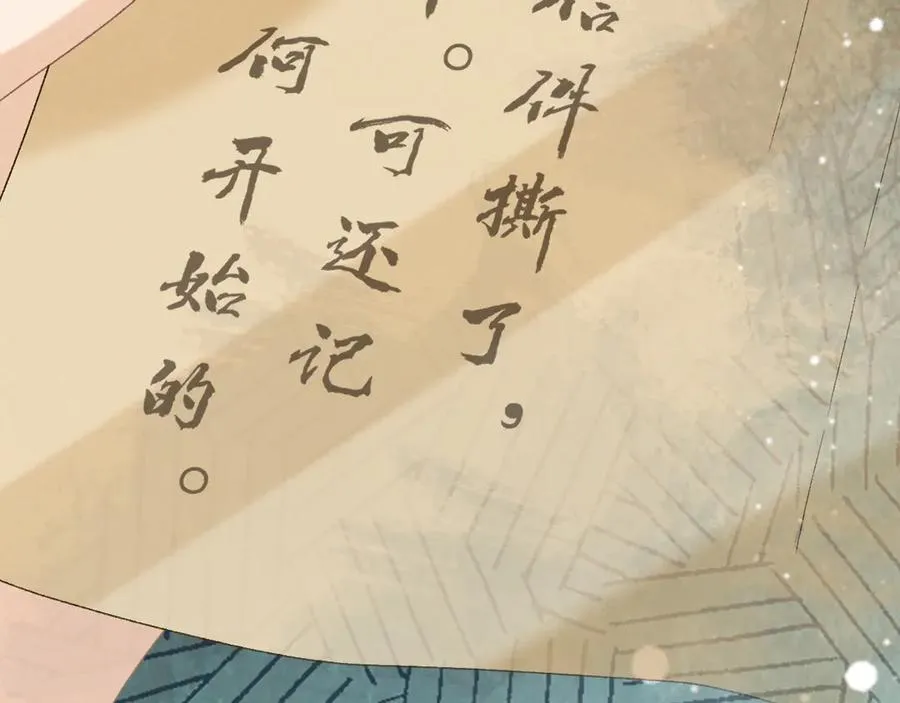 信件撕了，
。可还记
何开始的。